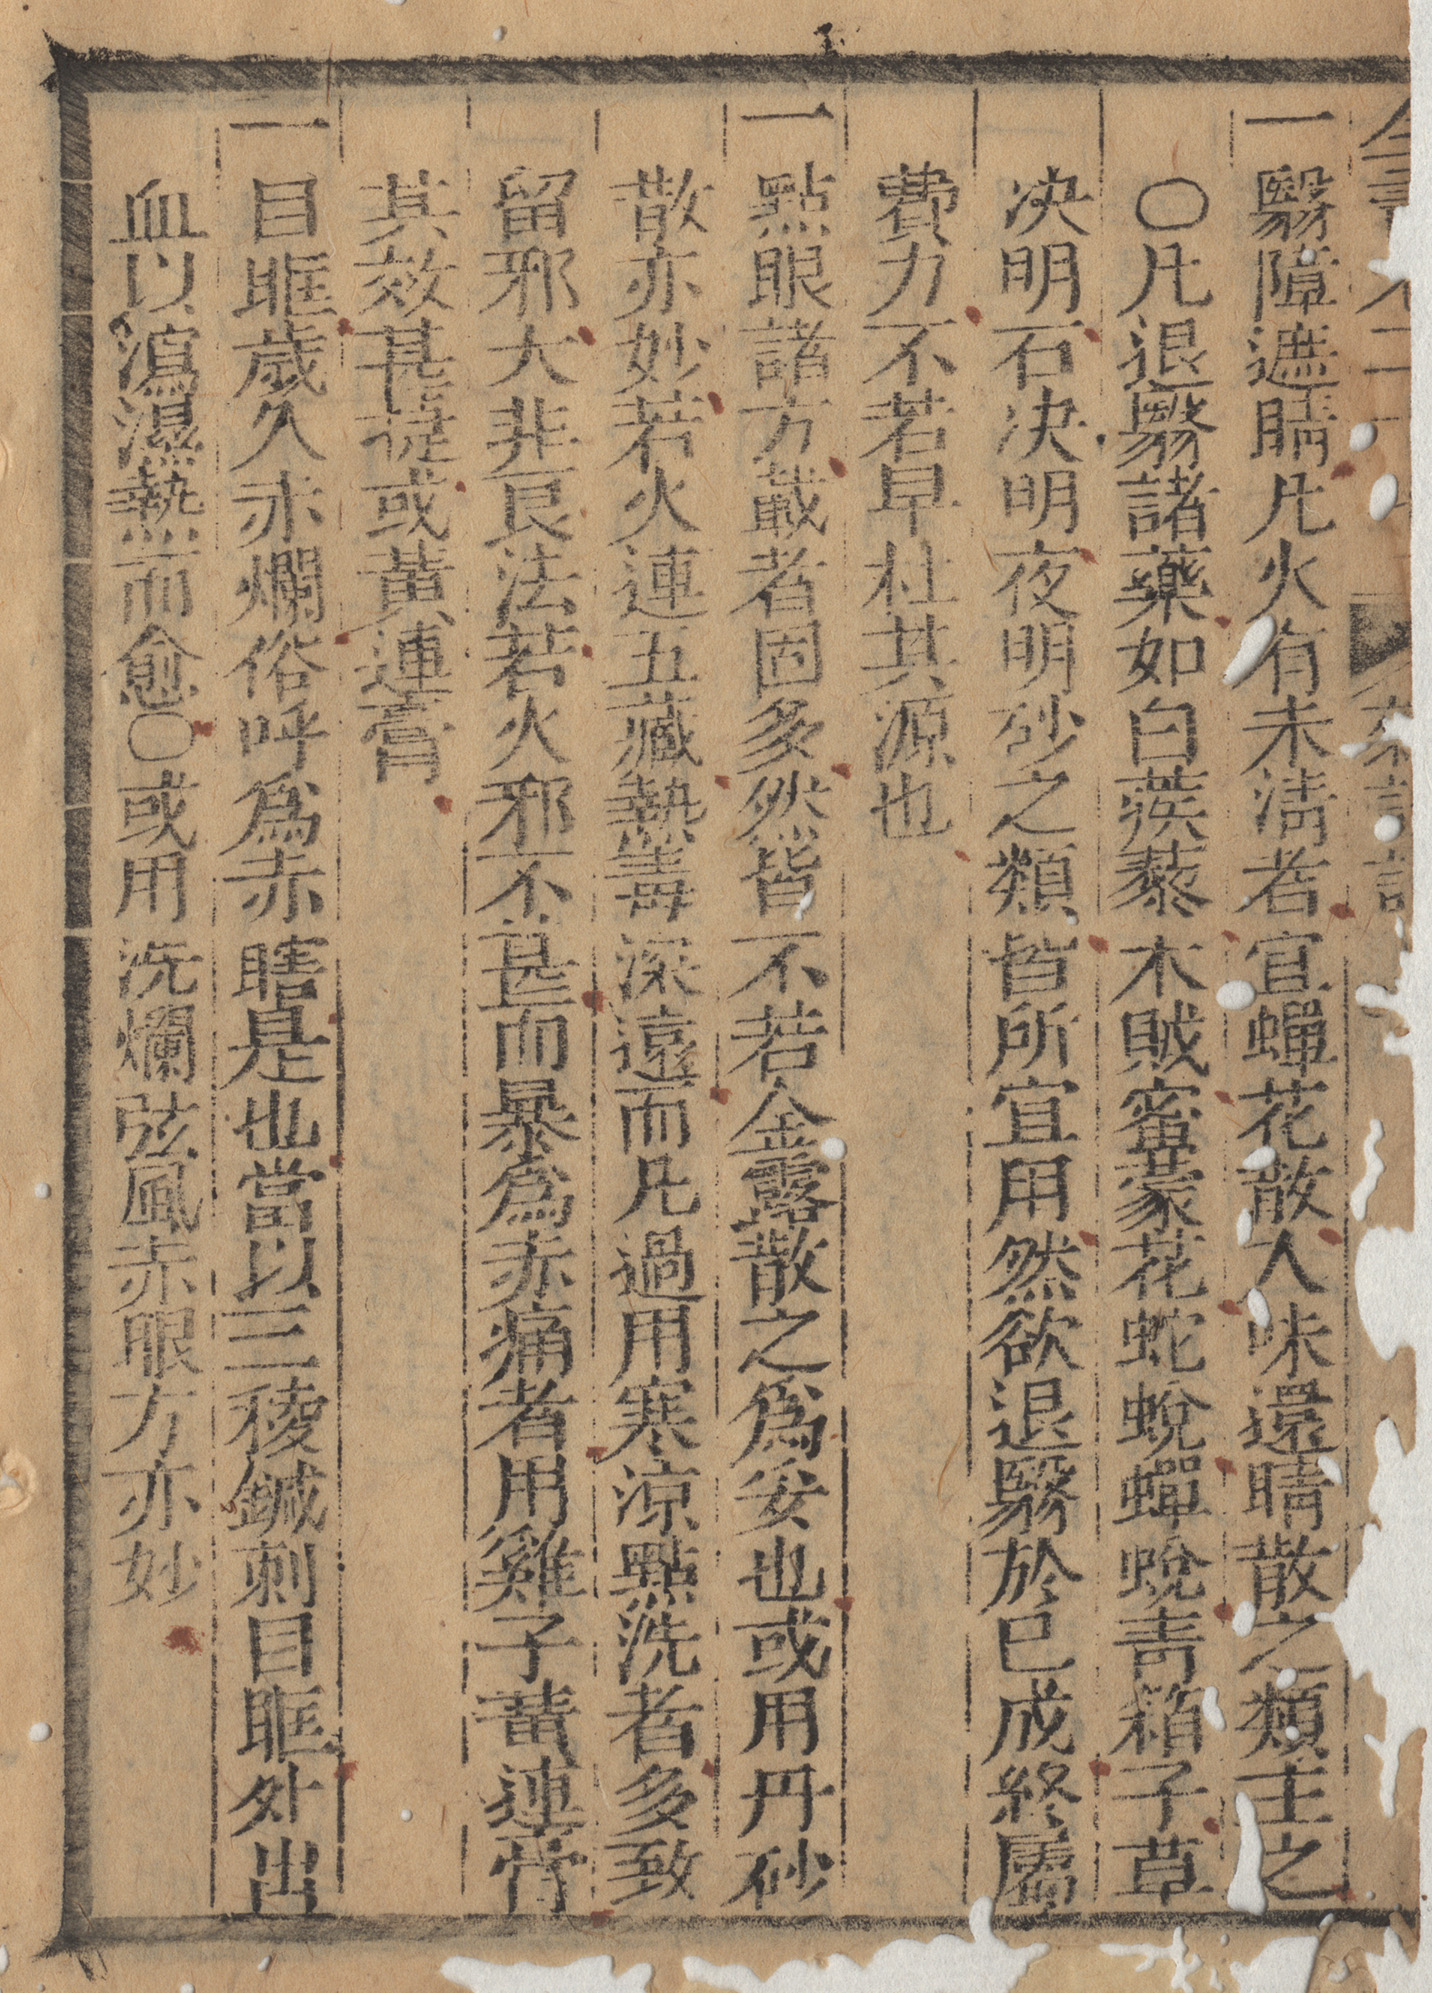 一翳障遮睛凡火有未清者宜蟬花散八味還睛散之類主之
〇凡退翳諸藥如白蒺藜木賊蜜蒙花蛇蛻蟬蛻青箱子草
决明石决明夜明砂之類皆所宜用然欲退翳於已成終屬
費力不若早杜其源也
一點眼諸方載者固多然皆不若金露散之爲妥也或用丹砂
散亦妙若火連五藏熱毒深遠而凡過用寒涼點洗者多致
留邪大非良法若火邪不甚而暴爲赤痛者用雞子黃連膏
其效甚徤或黃連膏
一目眶歲久赤爛俗呼爲赤瞎是也當以三稜鍼刺目眶外出
血以瀉濕熱而愈〇或用洗爛弦風赤眼方亦妙